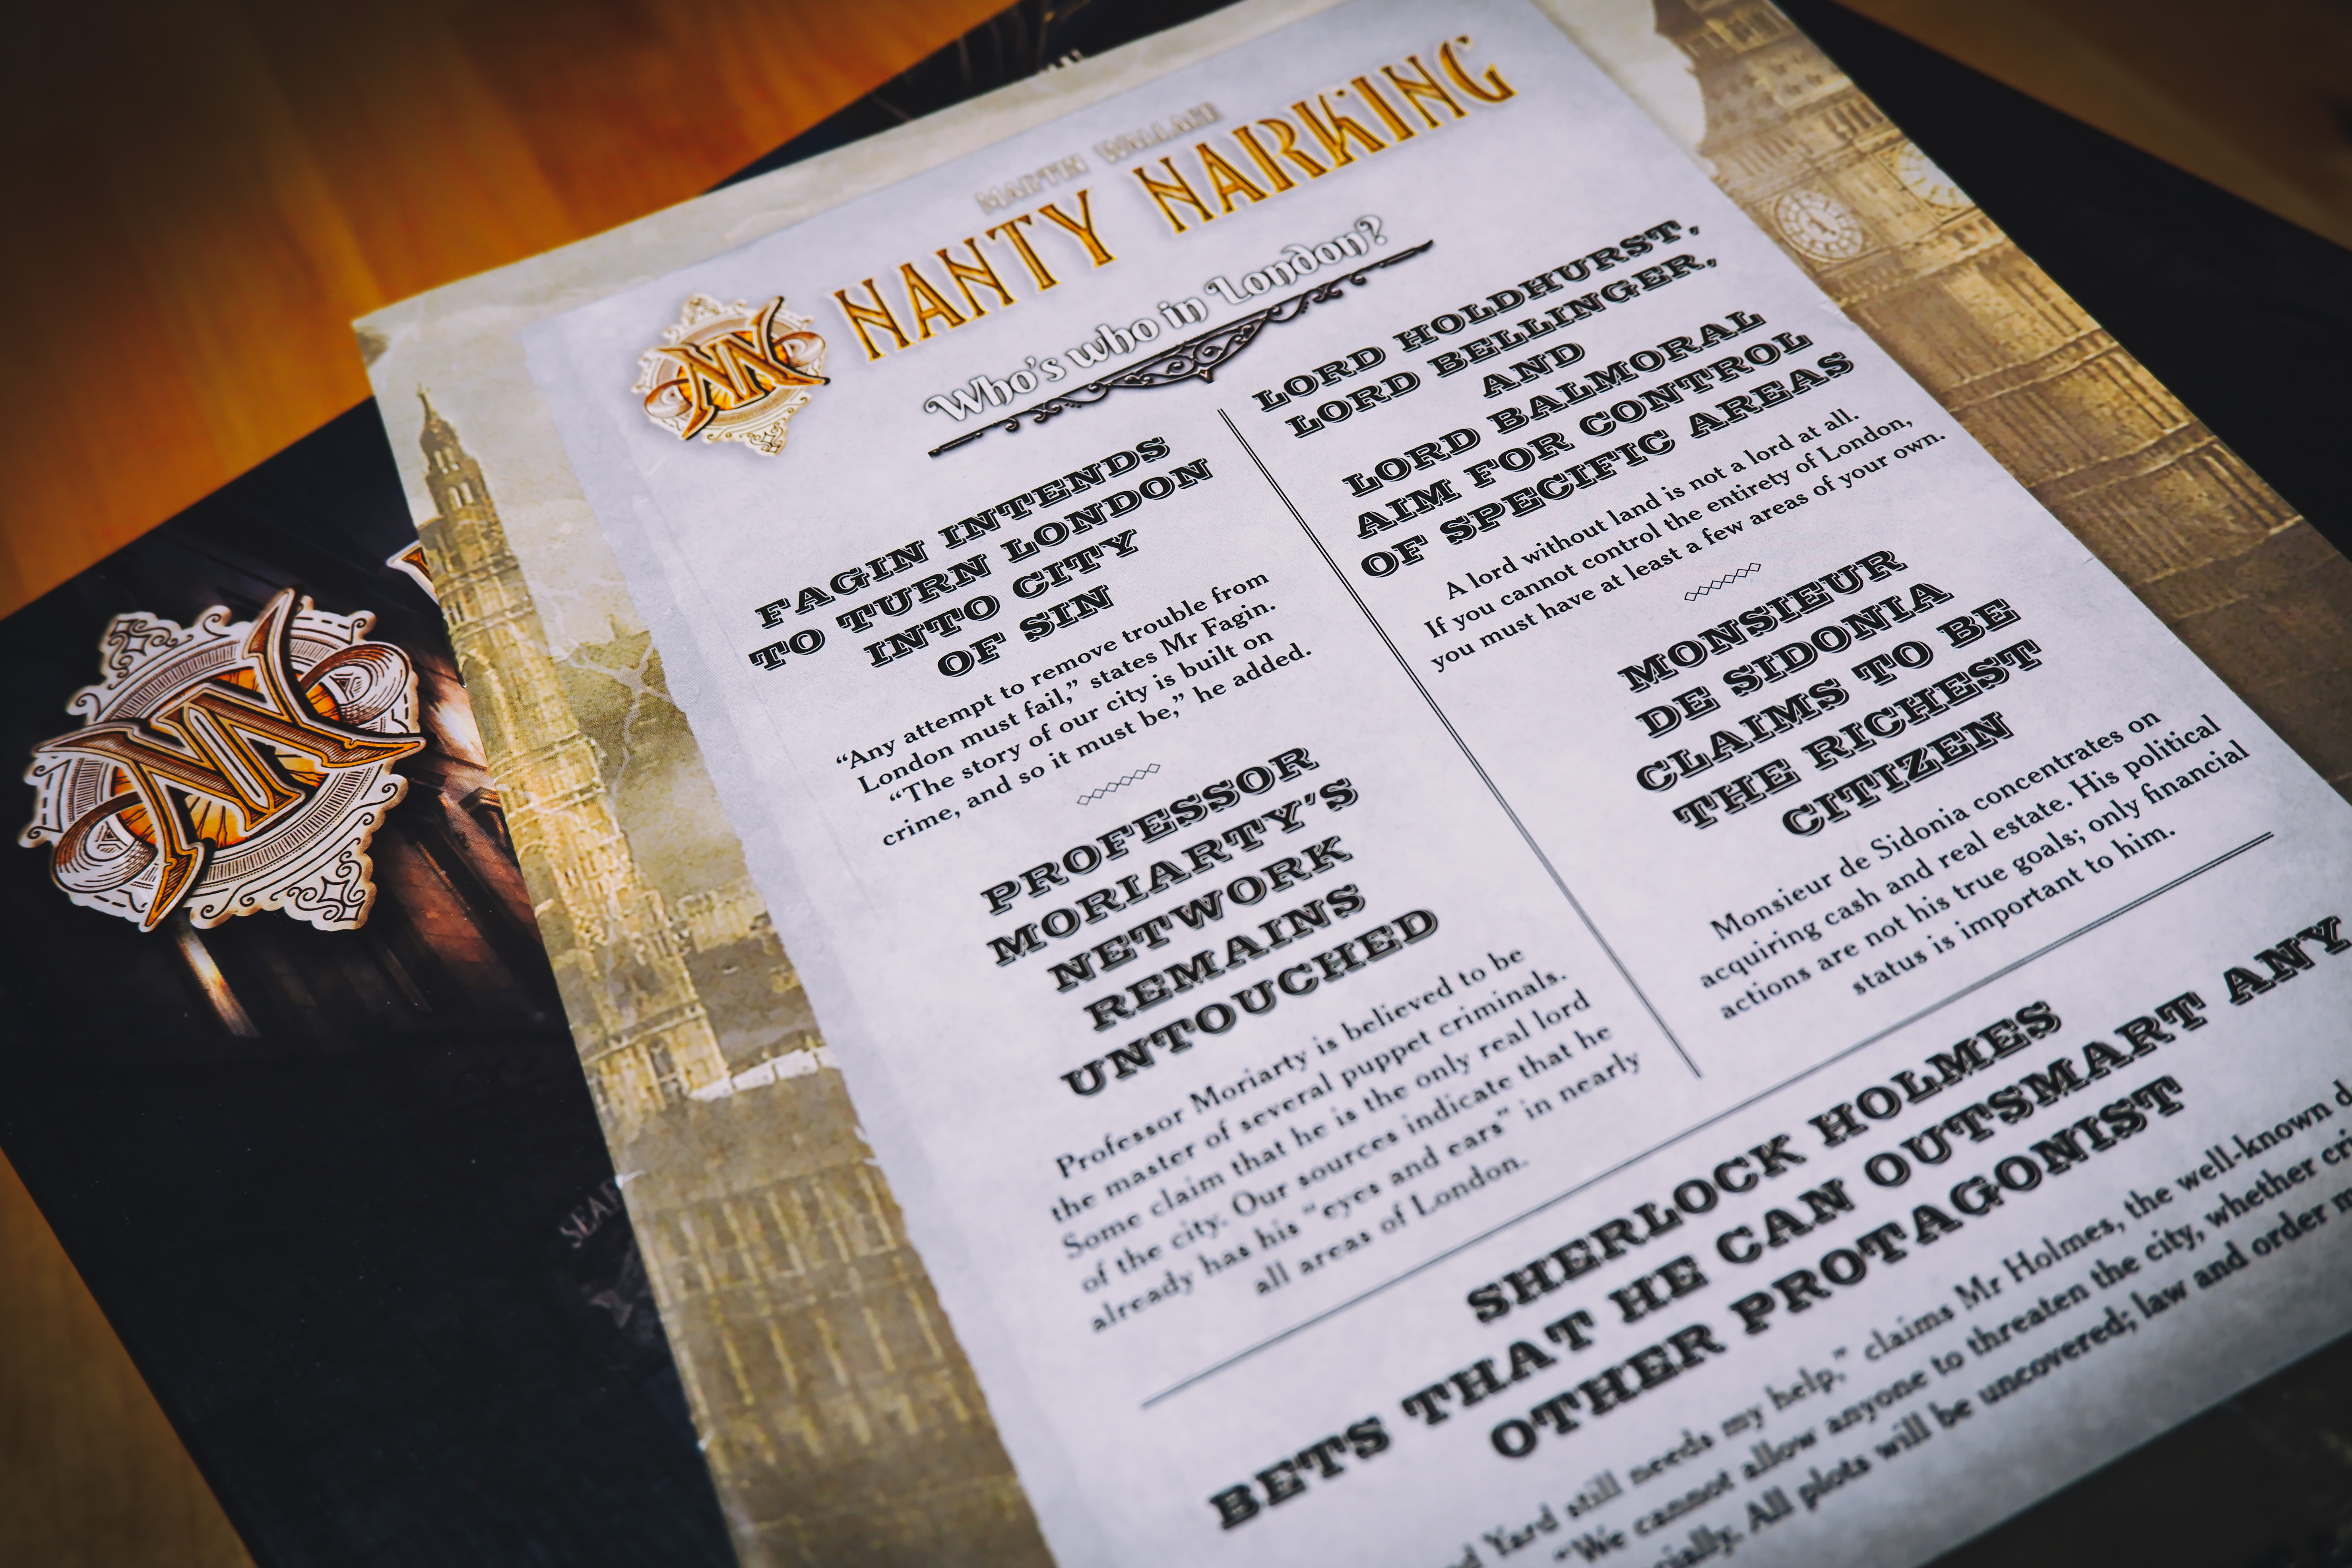 MARTIN WALLACE
NANTY NARKING
Who's who in London?
FAGIN INTENDS
TO TURN LONDON
INTO CITY
OF SIN
“Any attempt to remove trouble from
London must fail,” states Mr Fagin.
“The story of our city is built on
crime, and so it must be,” he added.
PROFESSOR
MORIARTY'S
NETWORK
REMAINS
UNTOUCHED
Professor Moriarty is believed to be
the master of several puppet criminals.
Some claim that he is the only real lord
of the city. Our sources indicate that he
already has his “eyes and ears” in nearly
all areas of London.
LORD HOLDHURST,
LORD BELLINGER,
AND
LORD BALMORAL
AIM FOR CONTROL
OF SPECIFIC AREAS
A lord without land is not a lord at all.
If you cannot control the entirety of London,
you must have at least a few areas of your own.
MONSIEUR
DE SIDONIA
CLAIMS TO BE
THE RICHEST
CITIZEN
Monsieur de Sidonia concentrates on
acquiring cash and real estate. His political
actions are not his true goals; only financial
status is important to him.
SHERLOCK HOLMES
BETS THAT HE CAN OUTSMART ANY
OTHER PROTAGONIST
Yard still needs my help,” claims Mr Holmes, the well-known
“We cannot allow anyone to threaten the city, whether
All plots will be uncovered; law and order
NN
NN